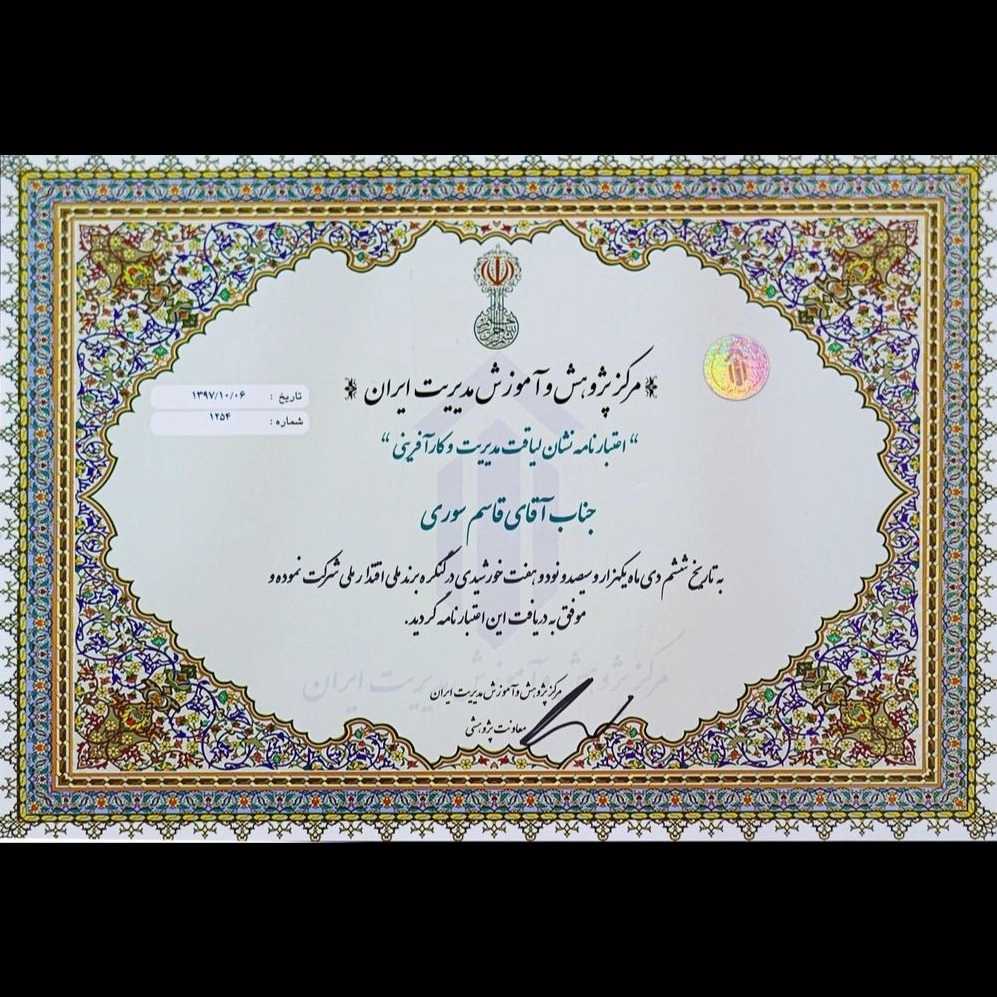 مرکز پژوهش و آموزش مدیریت ایران
تاریخ : ۱۳۹۷/۱۰/۰۶
شماره : ۱۲۵۴
“اعتبارنامه نشان لیاقت مدیریت و کارآفرینی“
جناب آقای قاسم سوری
به تاریخ ششم دی ماه یکهزار و سیصد و نود و هفت خورشیدی در کنگره برند ملی اقتدار ملی شرکت نموده و
موفق به دریافت این اعتبارنامه گردید.
مرکز پژوهش و آموزش مدیریت ایران
مرکز پژوهش و آموزش مدیریت ایران
معاونت پژوهشی